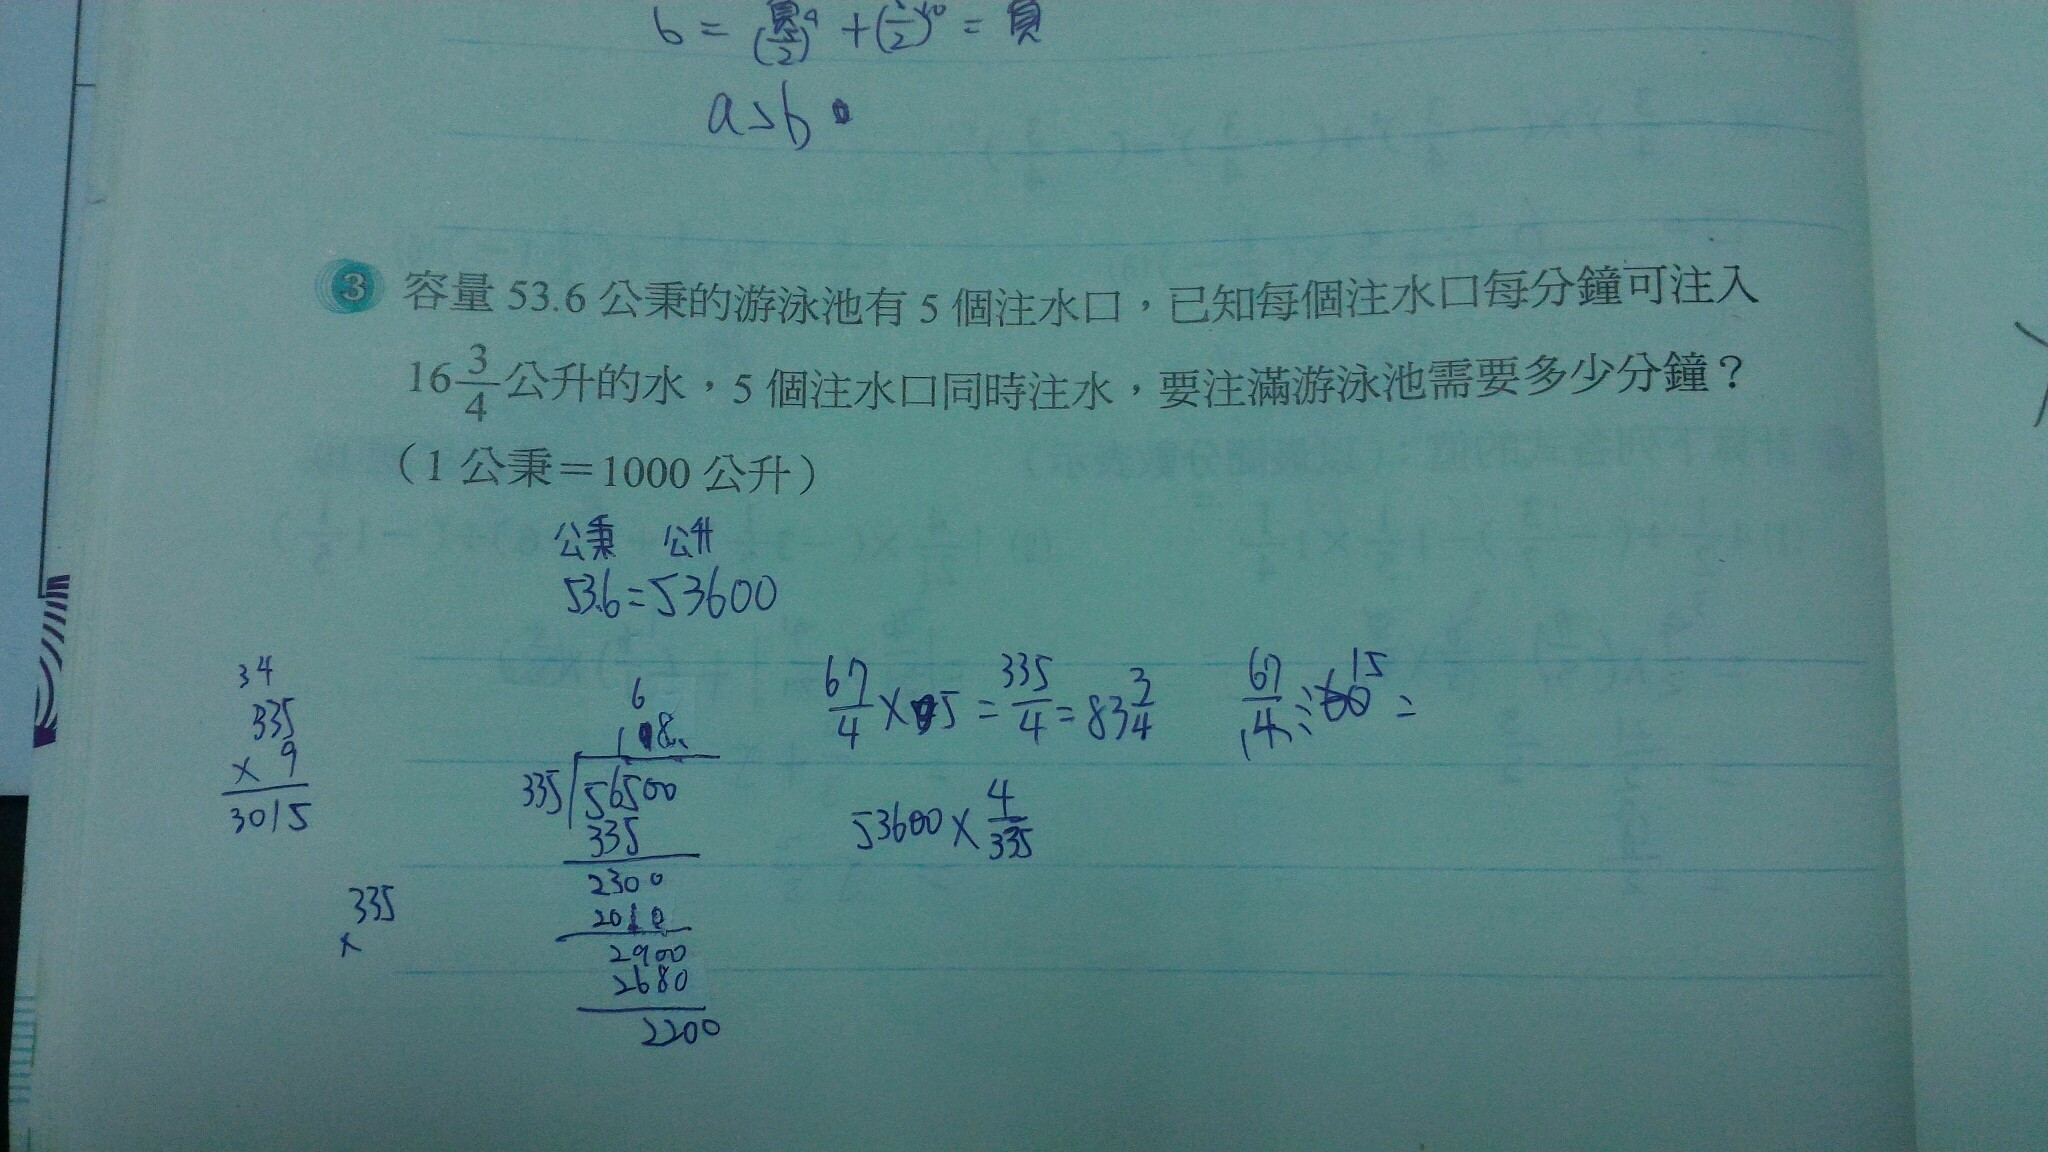 b = (負/2)^9 + (1/2)^10 = 負
a>b
3 容量 53.6 公秉的游泳池有 5 個注水口，已知每個注水口每分鐘可注入
16 3/4 公升的水，5 個注水口同時注水，要注滿游泳池需要多少分鐘？
（1 公秉＝1000 公升）
公秉 公升
53.6=53600
67/4 × 5 = 335/4 = 83 3/4
67/4 15 =
53600 × 4/335
34
335
× 9
3015
335
×
6
18.
335 56500
335
2300
2010
2900
2680
2200